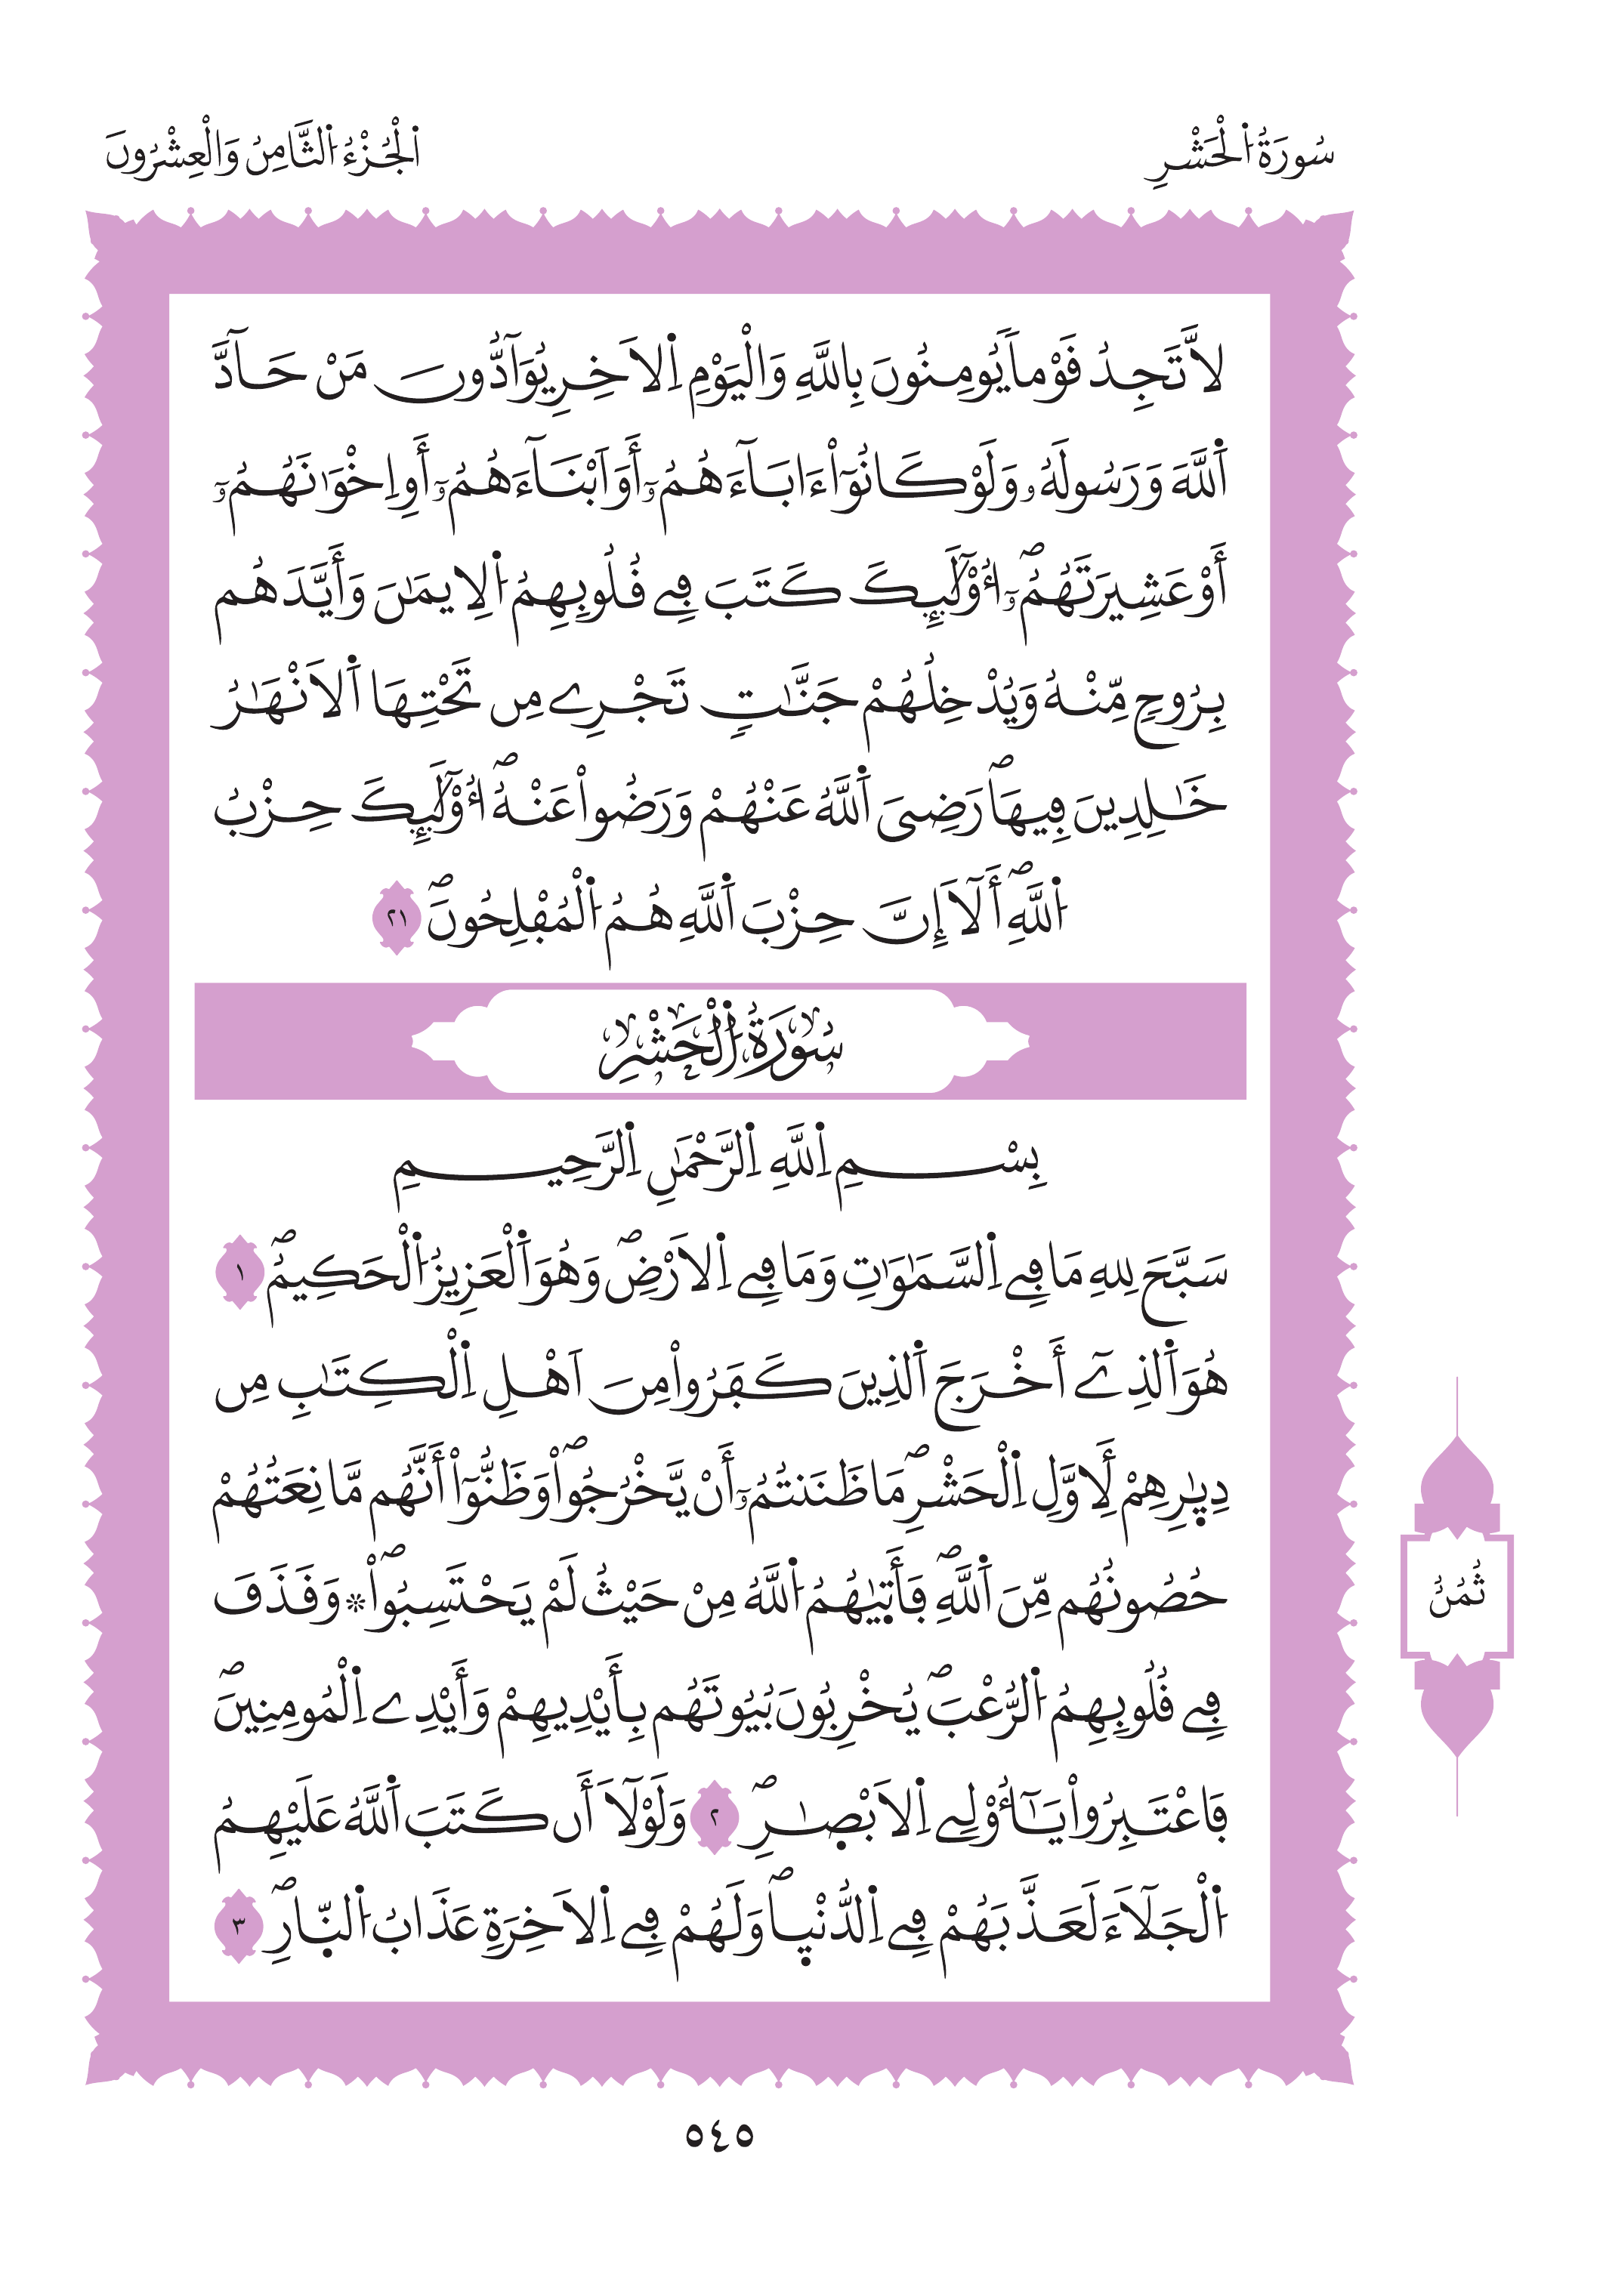 سُورَةُ اُ۬لْحَشْرِ
اَ۬لْجُزْءُ اُ۬لثَّامِنُ وَالْعِشْرُونَ
لَّا تَجِدُ قَوْماٗ يُومِنُونَ بِاللَّهِ وَالْيَوْمِ اِ۬لَاخِرِ يُوَآدُّونَ مَنْ حَآدَّ
اَ۬للَّهَ وَرَسُولَهُۥ وَلَوْ كَانُوٓاْ ءَابَآءَهُمُۥٓ أَوَ اَبْنَآءَهُمُۥٓ أَوِ اِخْوَٰنَهُمُۥٓ
أَوْ عَشِيرَتَهُمُۥٓۖ أُوْلَٰٓئِكَ كَتَبَ فِے قُلُوبِهِمُ اُ۬لِايمَٰنَ وَأَيَّدَهُم
بِرُوحٖ مِّنْهُ وَيُدْخِلُهُمْ جَنَّٰتٖ تَجْرِے مِن تَحْتِهَا اَ۬لَانْهَٰرُ
خَٰلِدِينَ فِيهَاۖ رَضِىَ اَ۬للَّهُ عَنْهُمْ وَرَضُواْ عَنْهُۖ أُوْلَٰٓئِكَ حِزْبُ
اُ۬للَّهِۖ أَلَآ إِنَّ حِزْبَ اَ۬للَّهِ هُمُ اُ۬لْمُفْلِحُونَۖ ٢١
سُورَةُ اُ۬لْحَشْرِ
بِسْمِ اِ۬للَّهِ اِ۬لرَّحْمَٰنِ اِ۬لرَّحِيمِ
سَبَّحَ لِلهِ مَا فِے اِ۬لسَّمَٰوَٰتِ وَمَا فِے اِ۬لَارْضِۖ وَهُوَ اَ۬لْعَزِيزُ اُ۬لْحَكِيمُۖ ١
هُوَ اَ۬لذِےٓ أَخْرَجَ اَ۬لذِينَ كَفَرُواْ مِنَ اَهْلِ اِ۬لْكِتَٰبِ مِن
دِيٰ۪رِهِمْ لِأَوَّلِ اِ۬لْحَشْرِۖ مَا ظَنَنتُمُۥٓ أَنْ يَّخْرُجُواْۖ وَظَنُّوٓاْ أَنَّهُم مَّانِعَتُهُمْ
حُصُونُهُم مِّنَ اَ۬للَّهِۖ فَأَت۪يٰهُمُ اُ۬للَّهُ مِنْ حَيْثُ لَمْ يَحْتَسِبُواْۖ ۞ وَقَذَفَ
فِے قُلُوبِهِمُ اُ۬لرُّعْبَۖ يُخْرِبُونَ بُيُوتَهُم بِأَيْدِيهِمْ وَأَيْدِے اِ۬لْمُومِنِينَۖ
فَاعْتَبِرُواْ يَٰٓأُوْلِے اِ۬لَابْصٰ۪رِۖ ٢ وَلَوْلَآ أَن كَتَبَ اَ۬للَّهُ عَلَيْهِمُ
اُ۬لْجَلَآءَ لَعَذَّبَهُمْ فِے اِ۬لدُّنْي۪اۖ وَلَهُمْ فِے اِ۬لَاخِرَةِ عَذَابُ اُ۬لنّ۪ارِۖ ٣
ثُمُنُ
٥٤٥